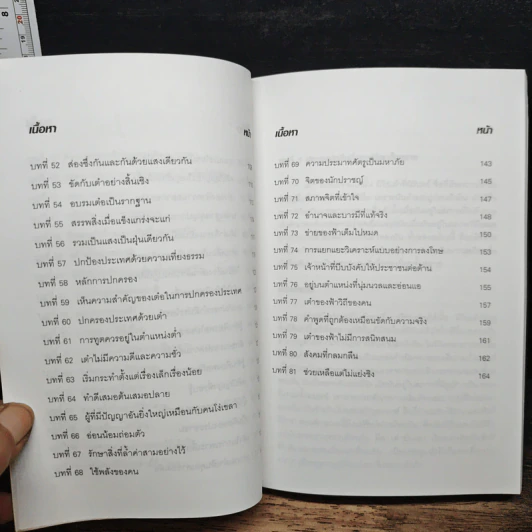 เนื้อหา
บทที่ 52 ส่องซึ่งกันและกันด้วยแสงเดียวกัน
บทที่ 53 ขัดกับเต๋าอย่างสิ้นเชิง
บทที่ 54 อบรมเต๋อเป็นรากฐาน
บทที่ 55 สรรพสิ่งเมื่อแข็งแกร่งจะแก่
บทที่ 56 รวมเป็นแสงเป็นฝุ่นเดียวกัน
บทที่ 57 ปกป้องประเทศด้วยความเที่ยงธรรม
บทที่ 58 หลักการปกครอง
บทที่ 59 เห็นความสำคัญของเต๋อในการปกครองประเทศ
บทที่ 60 ปกครองประเทศด้วยเต๋า
บทที่ 61 การทูตควรอยู่ในตำแหน่งต่ำ
บทที่ 62 เต๋าไม่มีความดีและความชั่ว
บทที่ 63 เริ่มกระทำตั้งแต่เรื่องเล็กเรื่องน้อย
บทที่ 64 ทำดีเสมอต้นเสมอปลาย
บทที่ 65 ผู้ที่มีปัญญาอันยิ่งใหญ่เหมือนกับคนโง่เขลา
บทที่ 66 อ่อนน้อมถ่อมตัว
บทที่ 67 รักษาสิ่งที่ล้ำค่าสามอย่างไว้
บทที่ 68 ใช้พลังของคน
เนื้อหา หน้า
บทที่ 69 ความประมาทศัตรูเป็นมหาภัย 143
บทที่ 70 จิตของนักปราชญ์ 145
บทที่ 71 สภาพจิตที่เข้าใจ 147
บทที่ 72 อำนาจและบารมีที่แท้จริง 148
บทที่ 73 ข่ายของฟ้าเต็มไปหมด 150
บทที่ 74 การแยกแยะวิเคราะห์แบบอย่างการลงโทษ 153
บทที่ 75 เจ้าหน้าที่บีบบังคับให้ประชาชนต่อต้าน 154
บทที่ 76 อยู่บนตำแหน่งที่นุ่มนวลและอ่อนแอ 155
บทที่ 77 เต๋าของฟ้าวิถีของคน 157
บทที่ 78 คำพูดที่ถูกต้องเหมือนขัดกับความจริง 159
บทที่ 79 เต๋าของฟ้าไม่มีการสนิทสนม 161
บทที่ 80 สังคมที่กลมกลืน 162
บทที่ 81 ช่วยเหลือแต่ไม่แย่งชิง 164